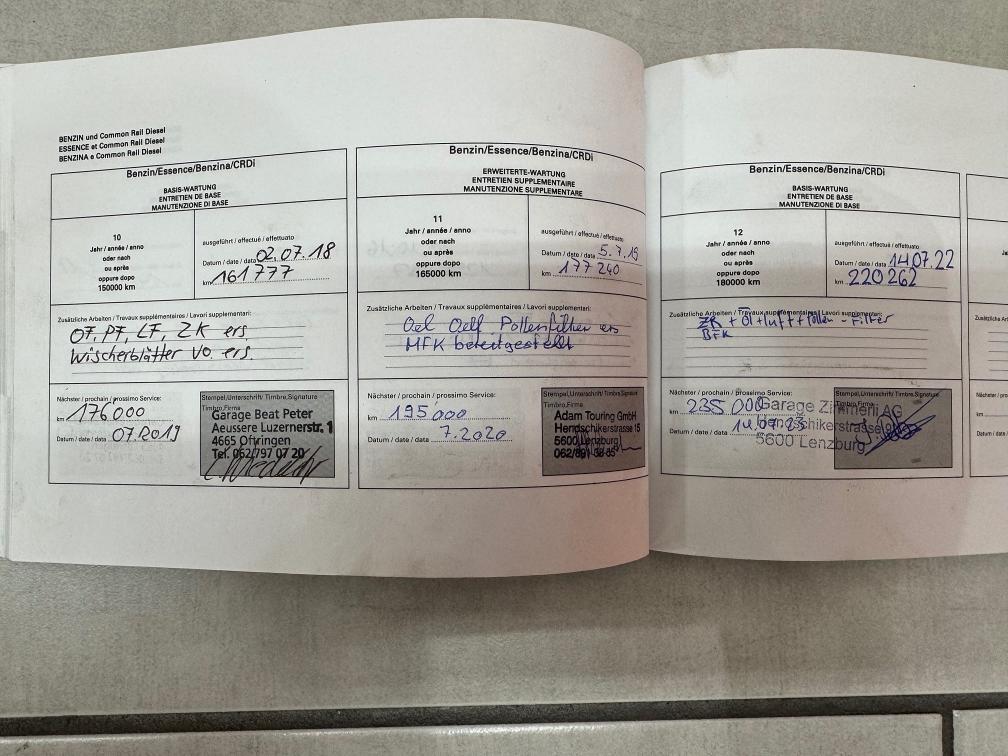 BENZIN und Common Rail Diesel
ESSENCE et Common Rail Diesel
BENZINA e Common Rail Diesel
Benzin/Essence/Benzina/CRDi
BASIS-WARTUNG
ENTRETIEN DE BASE
MANUTENZIONE DI BASE
10
Jahr / année / anno
oder nach
ou après
oppure dopo
150000 km
ausgeführt / effectué / effettuato
Datum / date / data 02.07.18
km 161777
Zusätzliche Arbeiten / Travaux supplémentaires / Lavori supplementari:
OF, PF, LF, ZK ers.
Wischerblätter vo. ers.
Nächster / prochain / prossimo Service:
km 176000
Datum / date / data 07.2019
Stempel, Unterschrift/ Timbre, Signature
Timbro, Firma
Garage Beat Peter
Aeussere Luzernerstr. 1
4665 Oftringen
Tel. 062/797 07 20
Benzin/Essence/Benzina/CRDi
ERWEITERTE-WARTUNG
ENTRETIEN SUPPLEMENTAIRE
MANUTENZIONE SUPPLEMENTARE
11
Jahr / année / anno
oder nach
ou après
oppure dopo
165000 km
ausgeführt / effectué / effettuato
Datum / date / data 5.7.19
km 177240
Zusätzliche Arbeiten / Travaux supplémentaires / Lavori supplementari:
Oel Oelf Pollenfilter ers
MFK bereitgestellt
Nächster / prochain / prossimo Service:
km 195000
Datum / date / data 7.2020
Stempel, Unterschrift/ Timbre, Signature
Timbro, Firma
Adam Touring GmbH
Hendschikerstrasse 15
5600 Lenzburg
Benzin/Essence/Benzina/CRDi
BASIS-WARTUNG
ENTRETIEN DE BASE
MANUTENZIONE DI BASE
12
Jahr / année / anno
oder nach
ou après
oppure dopo
180000 km
ausgeführt / effectué / effettuato
Datum / date / data 14.07.22
km 220262
Zusätzliche Arbeiten / Travaux supplémentaires / Lavori supplementari:
ZR + Öl + Luft + Pollen - Filter
BFK
Nächster / prochain / prossimo Service:
km 235 000
Datum / date / data 14.07.23
Stempel, Unterschrift/ Timbre, Signature
Timbro, Firma
Garage Zimmerli AG
Hendschikerstrasse
5600 Lenzburg